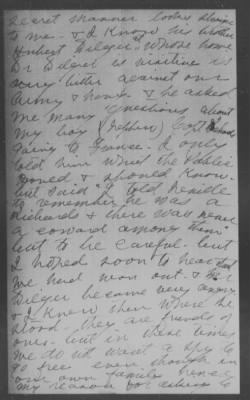 secret manner looks strange
to me. & I know his brother
Hubert Dilger" whose home
Dr Dilger is visiting is
very bitter against our
Army & home & he asked
me many questions about
my boy (nephew) Capt
going to France. I only
told him what the public
and should know
but said "I told
to remember he was a
Richards & there was never
a coward among them"
but to be careful. but
I hoped soon to hear that
we had won out. & Mr
Dilger became very angry
& I knew then where he
stood. they are friends of
ours. but in these times
we do not want a spy to
go free even though in
our own family hence
my reason for asking to